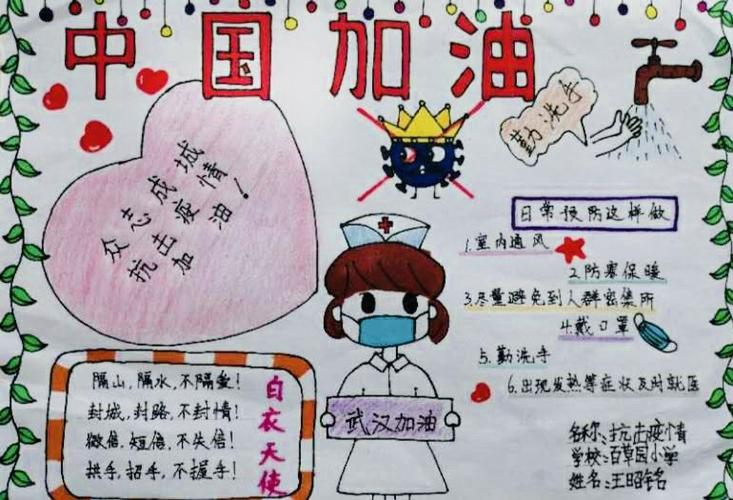 中国加油
勤洗手
众志成城
抗击疫情
加油！
日常预防这样做
1.室内通风
2.防寒保暖
3.尽量避免到人群密集所
4.戴口罩
5.勤洗手
6.出现发热等症状及时就医
隔山,隔水,不隔爱!
封城,封路,不封情!
微信,短信,不失信!
拱手,招手,不握手!
白衣天使
武汉加油
名称:抗击疫情
学校:百草园小学
姓名:王昭铭